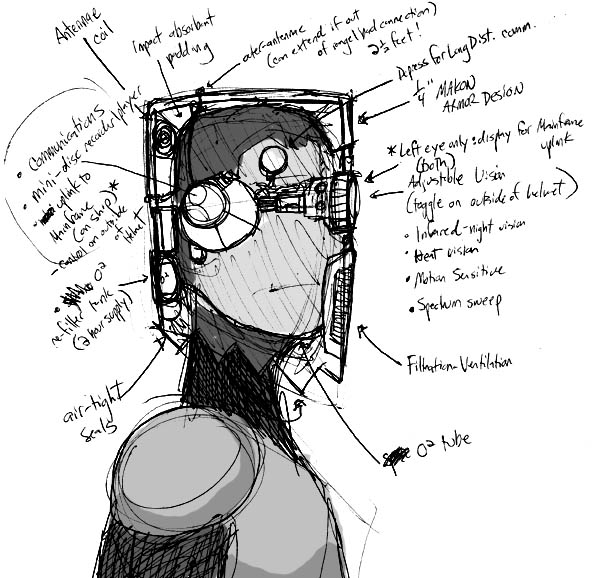 Antennae
coil
impact absorbant
padding
outer-antennae
(can extend if out
of range/bad connection)
2½ feet!
Depress for Long Dist. comm.
1/4" MAKON
ARMOR DESIGN
* Left eye only: display for Mainframe
uplink
(both)
Adjustable Vision
(toggle on outside of helmet)
• Infrared-night vision
• Heat vision
• Motion Sensitive
• Spectrum sweep
Filtration-Ventilation
O² tube
• Communications
• mini-disc recorder/player
• uplink to
Mainframe *
(on ship)
- control on outside
of helmet
• O²
re-filter tank
(2 hour supply)
air-tight
seals